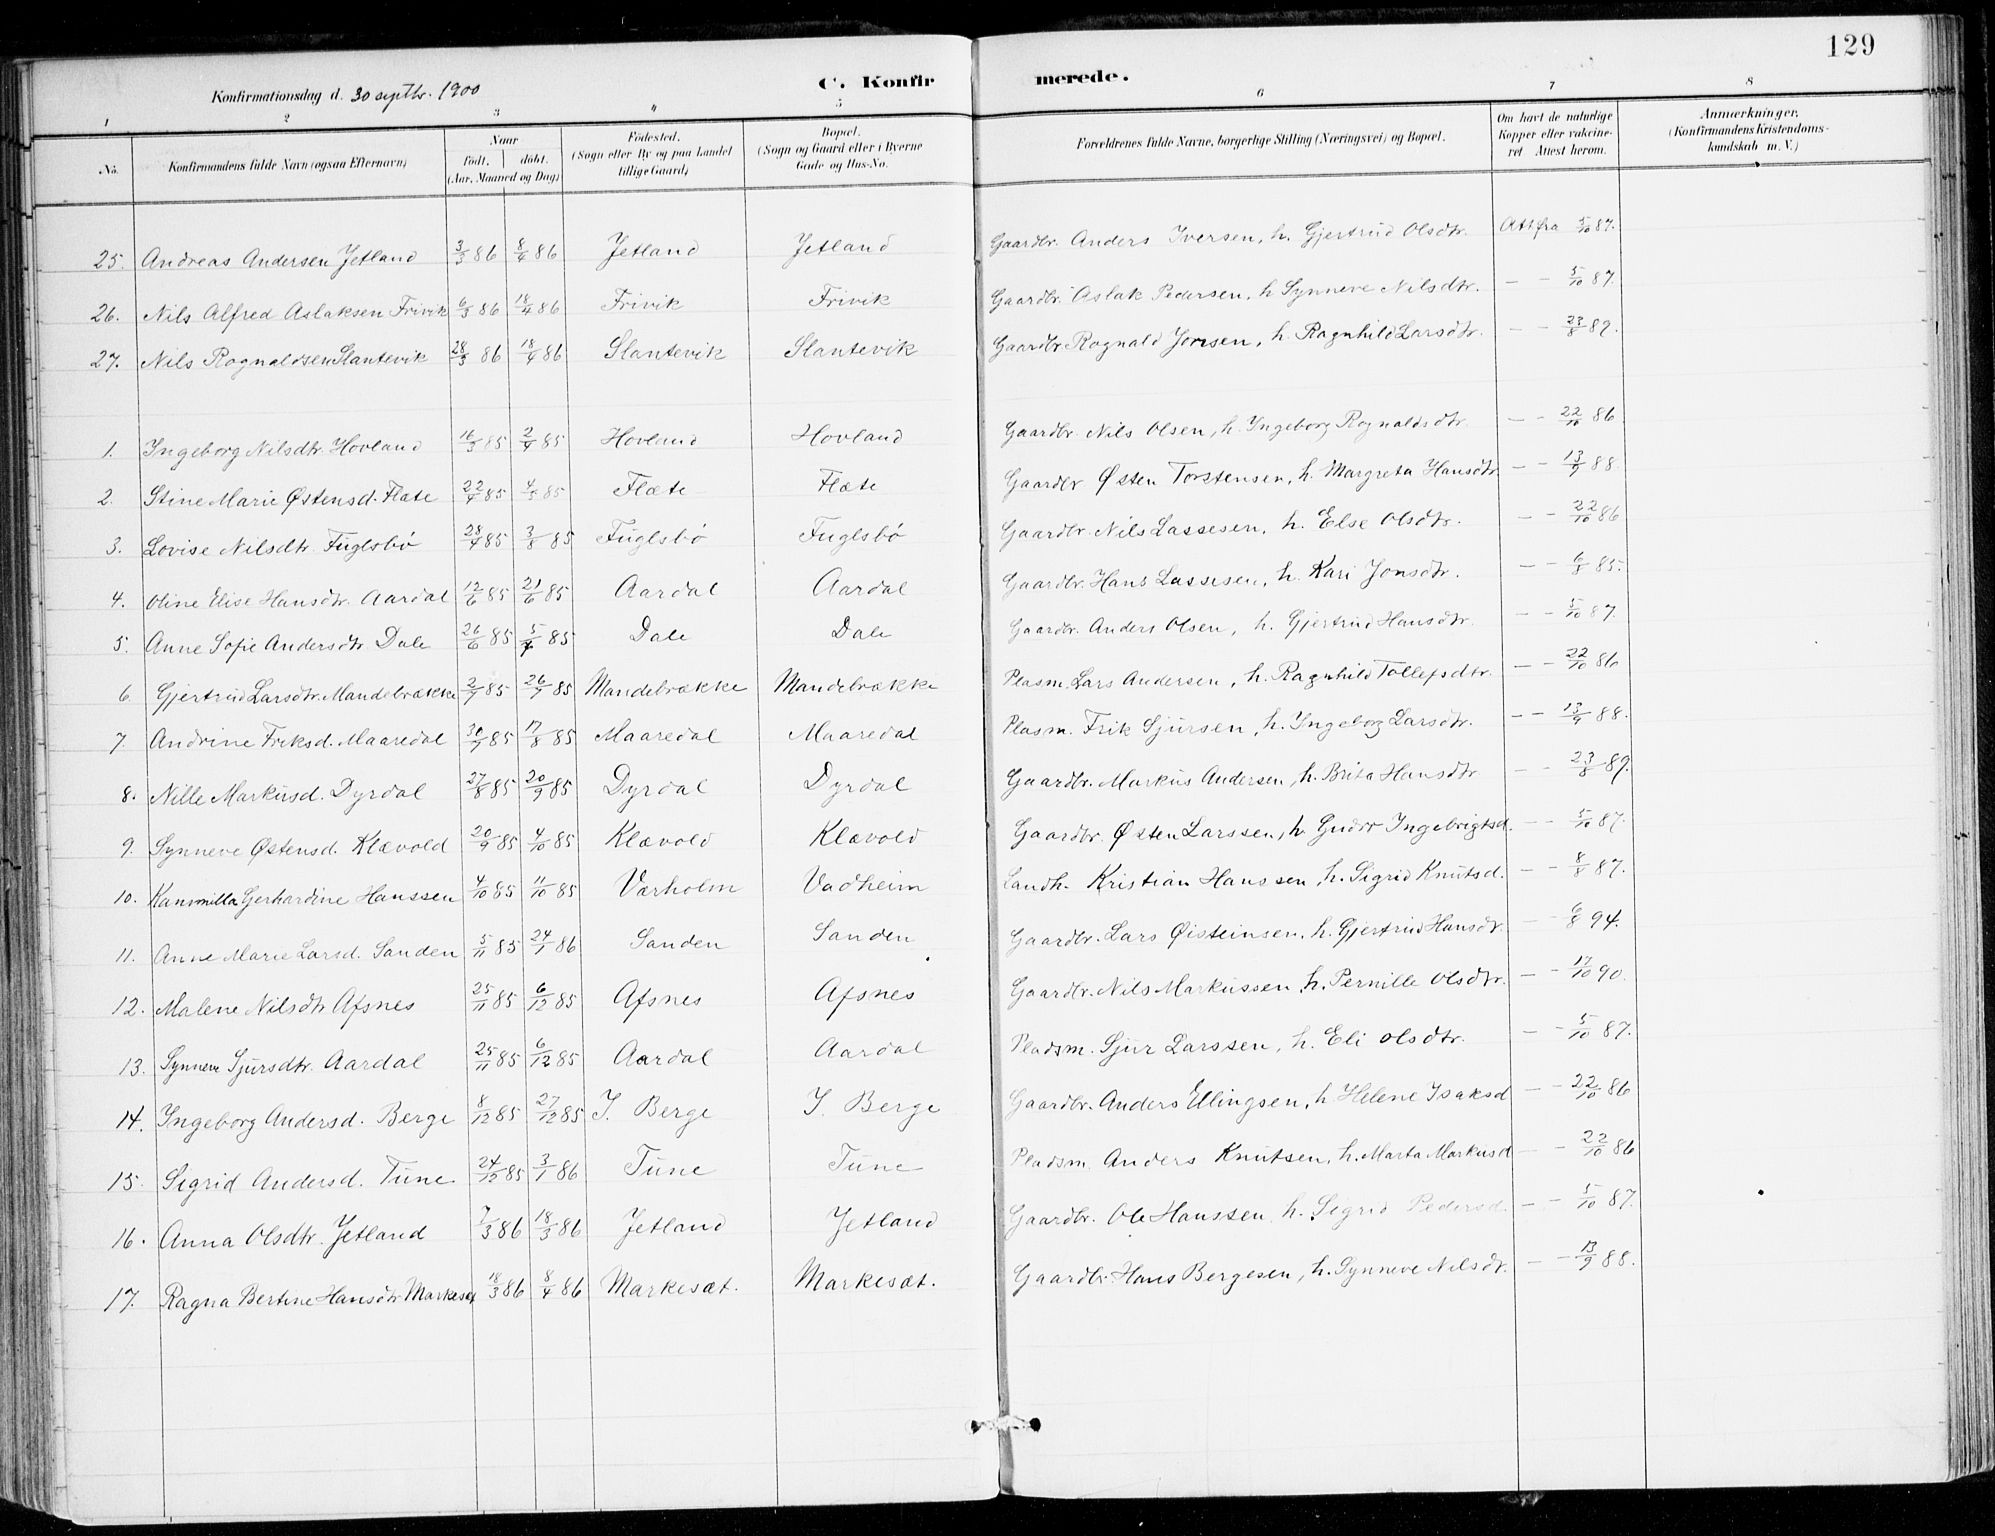 129
Konfirmationsdag d. 30 septbr. 1900
C. Konfir merede.
1 2 3 4 5 6 7 8
No. Konfirmandens fulde Navn (ogsaa Efternavn) Naar født. døbt. (Aar, Maaned og Dag) Fødested. (Sogn eller By og paa Landet tillige Gaard) Bopæl. (Sogn og Gaard eller i Byerne Gade og Hus-No. Forældrenes fulde Navne, borgerlige Stilling (Næringsvei) og Bopæl. Om havt de naturlige Kopper eller vakcineret Attest herom. Anmærkninger. (Konfirmandens Kristendomskundskab m. V.)
25. Andreas Andersen Jetland 3/3 86 8/4 86 Jetland Jetland Gaardbr. Anders Iversen, h. Gjertrud Olsdtr. Att fra 5/10 87.
26. Nils Alfred Aslaksen Frivik 6/3 86 18/4 86 Frivik Frivik Gaardbr. Aslak Pedersen, h. Synneve Nilsdtr. — - 5/10 87.
27. Nils Rognaldsen Slantevik 28/3 86 18/4 86 Slantevik Slantevik Gaardbr Rognald Jonsen, h. Ragnhild Larsdtr. — - 23/8 89.
1. Ingeborg Nilsdtr. Hovland 16/3 85 2/4 85 Hovland Hovland Gaardbr. Nils Olsen, h. Ingeborg Rognaldsdtr. — - 22/10 86
2. Stine Marie Østensd. Flæte 22/4 85 4/5 85 Flæte Flæte Gaardbr Østen Torstensen, h. Margreta Hansdtr. — - 13/9 88.
3. Lovise Nilsdtr. Fuglsbø 28/4 85 3/8 85 Fuglsbø Fuglsbø Gaardbr. Nils Lassesen, h. Else Olsdtr. — - 22/10 86
4. Oline Elise Hansdtr. Aardal 12/6 85 21/6 85 Aardal Aardal Gaardbr. Hans Lassesen, h. Kari Jonsdtr. — - 6/8 85.
5. Anne Sofie Andersdtr. Dale 26/6 85 5/7 85 Dale Dale Gaardbr. Anders Olsen, h. Gjertrud Hansdtr. — - 5/10 87.
6. Gjertrud Larsdtr. Mandebrække 2/7 85 26/7 85 Mandebrække Mandebrække Plasm. Lars Andersen, h. Ragnhild Tollefsdtr. — - 22/10 86
7. Andrine Friksd. Maaredal 30/7 85 17/8 85 Maaredal Maaredal Plasm. Frik Sjursen, h. Ingeborg Larsdtr. — - 13/9 88.
8. Nille Markusd. Dyrdal 27/8 85 20/9 85 Dyrdal Dyrdal Gaardbr. Markus Andersen, h. Brita Hansdtr — - 23/8 89.
9. Synneve Østensd. Klævold 20/9 85 4/10 85 Klævold Klævold Gaardbr. Østen Larssen, h. Gudrr Ingebrigtsd. — - 5/10 87.
10. Kammilla Gerhardine Hanssen 4/10 85 11/10 85 Værholm Vadheim Landh. Kristian Hanssen, h. Sigrid Knutsd. — - 8/8 87.
11. Anne Marie Larsd. Sanden 5/11 85 24/1 86 Sanden Sanden Gaardbr. Lars Øisteinsen, h. Gjertrud Hansdr. — - 6/8 94.
12. Malene Nilsdtr Afsnes 25/11 85 6/12 85 Afsnes Afsnes Gaardbr. Nils Markussen, h. Pernille Olsdtr. — - 17/10 90.
13. Synneve Sjursdtr. Aardal 25/11 85 6/12 85 Aardal Aardal Pladsm. Sjur Larssen, h. Eli Olsdtr. — - 5/10 87.
14. Ingeborg Andersd. Berge 8/12 85 27/12 85 I. Berge I. Berge Gaardbr. Anders Ellingsen, h. Helene Isaksd — - 22/10 86
15. Sigrid Andersd. Tune 24/12 85 3/1 86 Tune Tune Pladsm. Anders Knutsen, h. Marta Markusd — - 22/10 86
16. Anna Olsdtr. Jetland 7/3 86 18/3 86 Jetland Jetland Gaardbr. Ole Hanssen, h. Sigrid Pedersd. — - 5/10 87.
17. Ragna Bertine Hansdtr Markesæt 18/3 86 8/4 86 Markesæt. Markesæt. Gaardbr. Hans Bergesen, h. Synneve Nilsdr. — - 13/9 88.